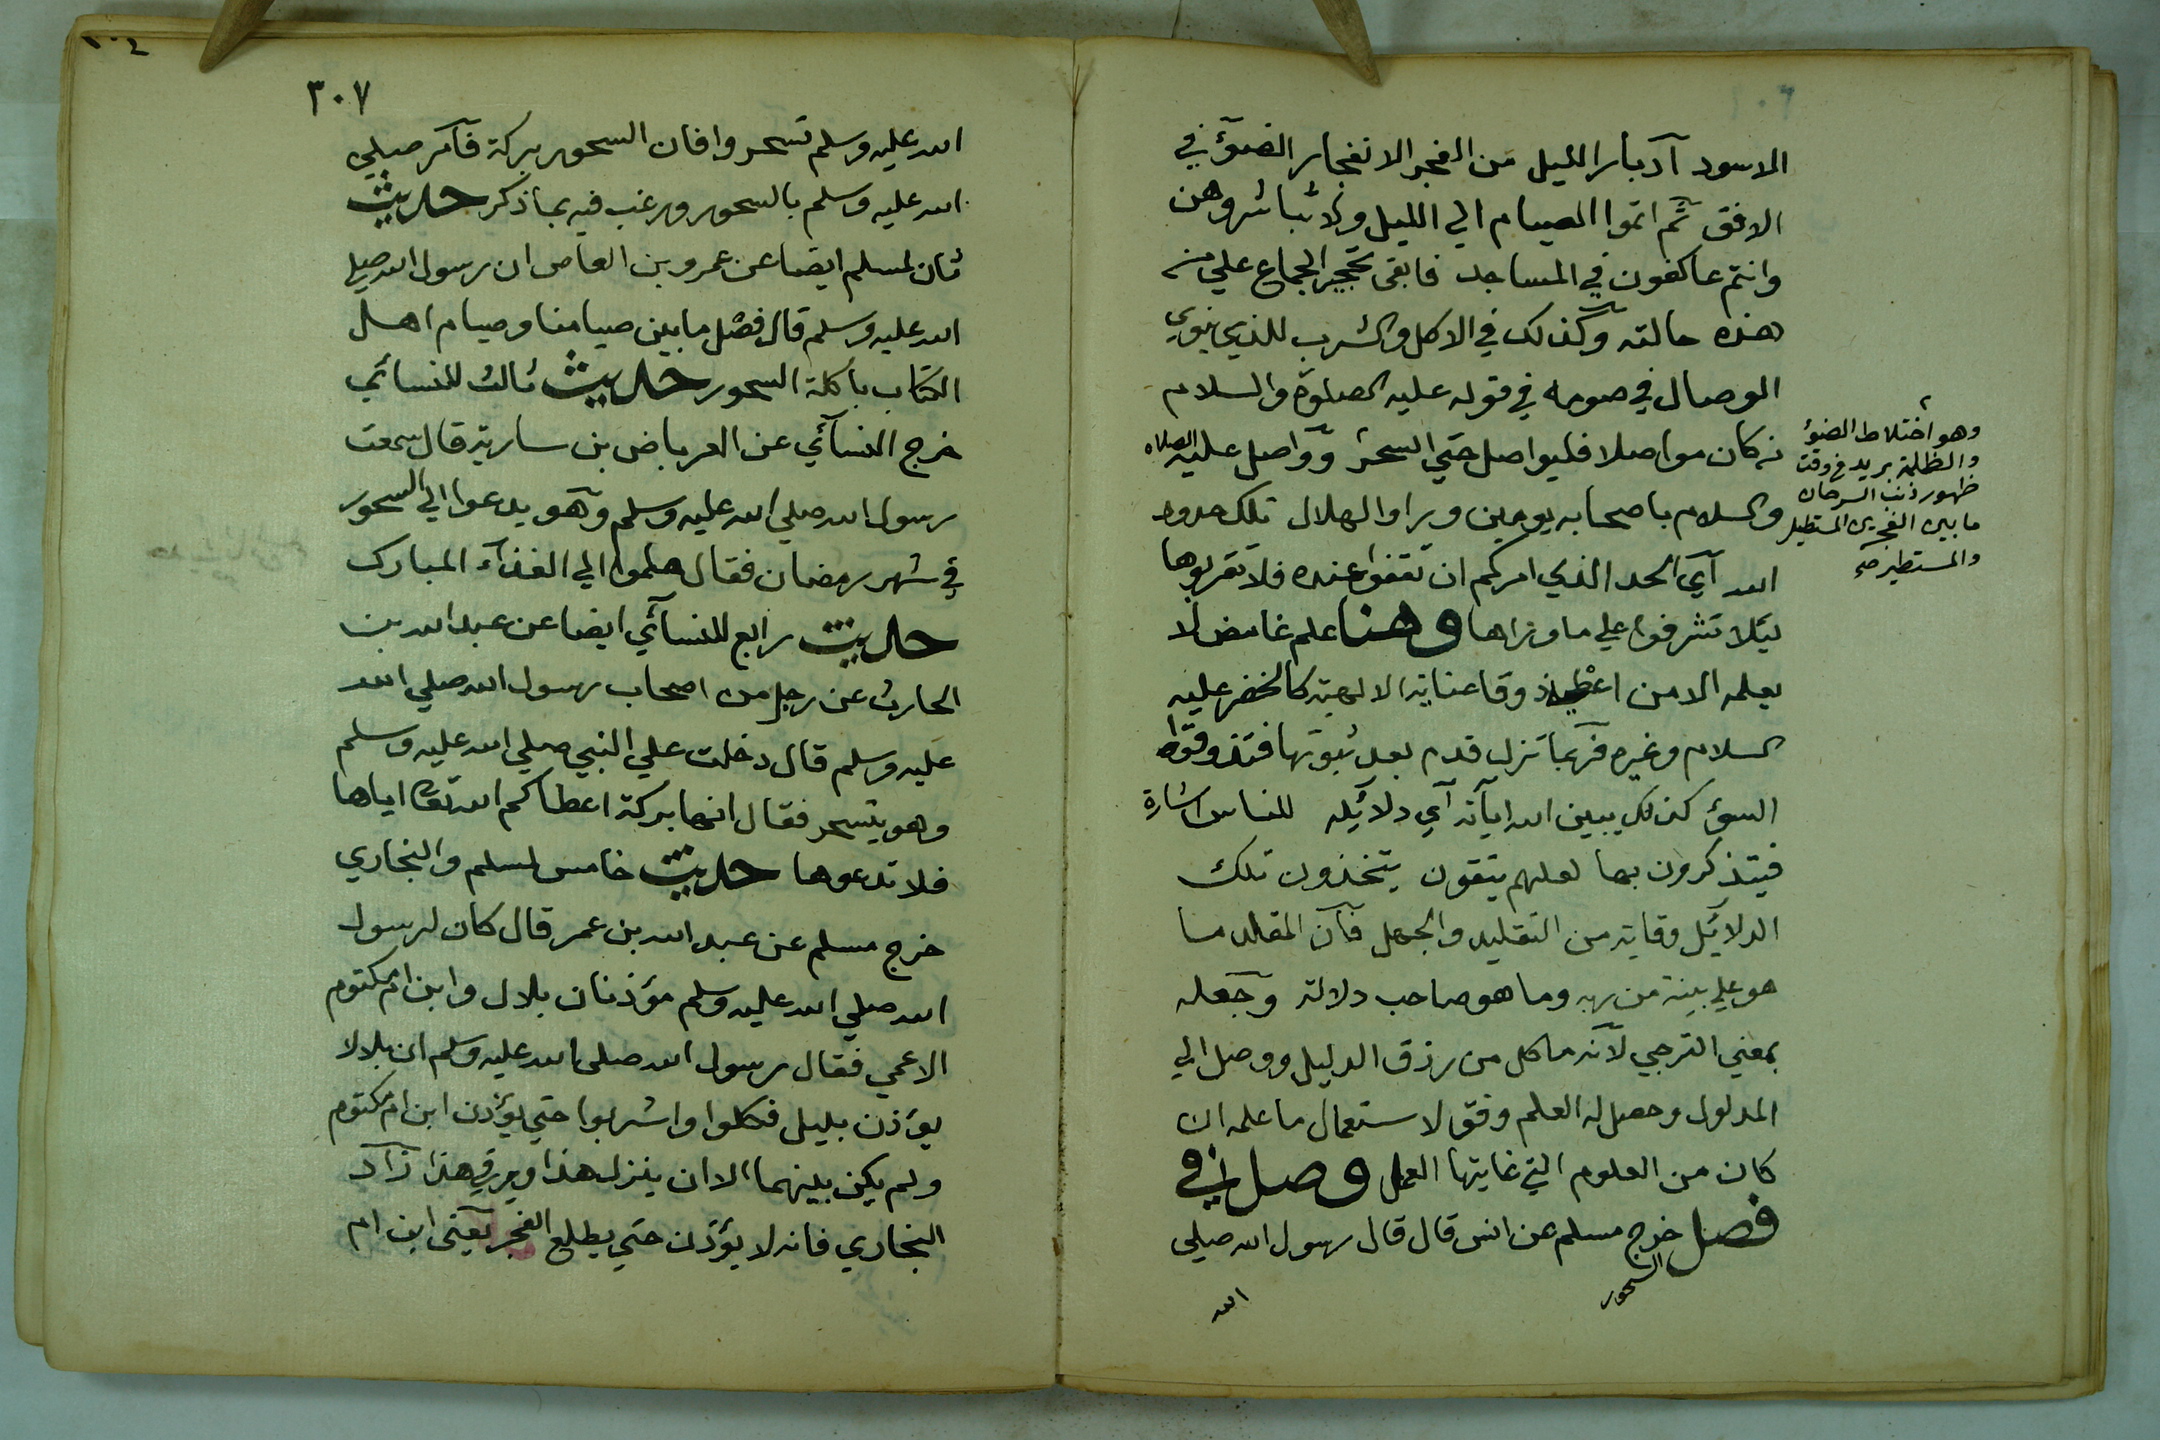 الاسود آدبار الليل من الفجر الانفجار الضوٓء في
الافق ثم اتموا الصيام الي الليل ولا تباشروهن
وانتم عاكفون في المساجد فابقى تحجير الجماع علي من
هذه حالته وكذلك في الاكل والشرب للذي ينوي
الوصال في صومه في قوله عليه الصلوة والسلام
من كان مواصلا فليواصل حتي السحر وواصل عليه الصلاه
والسلام باصحابه يومين وراوا الهلال تلك حدود
الله آي الحد الذي امركم ان تقفوا عنده فلا تقربوها
ليلا تشرفوا علي ما وراها وهنا علم غامض لا
يعلمه الا من اعطي ذوقا عناية الالهية كالخضر عليه
السلام وغيره فربما تزل قدم بعد ثبوتها فتذوقوا
السوء كذلك يبين الله اياته آي دلائيله للناس اشارة
فيتذكرون بها لعلهم يتقون يتخذون تلك
الدلائيل وقاية من التقليد والجهل فان المقلد ما
هو علي بينة من ربه وما هو صاحب دلالة وجعله
بمعني الترجي لانه ما كل من رزق الدليل ووصل الي
المدلول وحصل له العلم وفق لاستعمال ما علمه ان
كان من العلوم التي غايتها العمل وصل في
فصل خرج مسلم عن انس قال قال رسول الله صلي
السحور
الله
وهو اختلاط الضوء
والظلمة يريد في وقت
ظهور ذنب السرحان
ما بين الفجرين المستطيل
والمستطير صح
١٠٤
٣٠٧
الله عليه وسلم تسحروا فان السحور بركة فآمر صلي
الله عليه وسلم بالسحور ورغب فيه بما ذكر حديث
ثان لمسلم ايضا عن عمرو بن العاص ان رسول الله صلي
الله عليه وسلم قال فصل ما بين صيامنا وصيام اهل
الكتاب باكلة السحور حديث ثالث للنسائي
خرج النسآئي عن العرباض بن سارية قال سمعت
رسول الله صلي الله عليه وسلم وهو يدعوا الي السحور
في شهر رمضان فقال هلموا الي الغذآء المبارك
حديث رابع للنسآئي ايضا عن عبد الله بن
الحارث عن رجل من اصحاب رسول الله صلي الله
عليه وسلم قال دخلت علي النبي صلي الله عليه وسلم
وهو يتسحر فقال انها بركة اعطاكم الله تعا اياها
فلا تدعوها حديث خامس لمسلم والبخاري
خرج مسلم عن عبد الله بن عمر قال كان لرسول
الله صلي الله عليه وسلم مؤذنان بلال وابن ام مكتوم
الاعمي فقال رسول الله صلى الله عليه وسلم ان بلالا
يؤذن بليل فكلوا واشربوا حتي يؤذن ابن ام مكتوم
ولم يكن بينهما الا ان ينزل هذا ويرقي هذا زاد
البخاري فانه لا يؤذن حتي يطلع الفجر يعني ابن ام